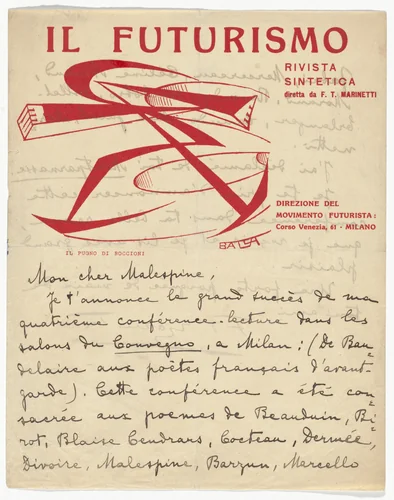 IL FUTURISMO
RIVISTA
SINTETICA
diretta da F. T. MARINETTI
DIREZIONE DEL
MOVIMENTO FUTURISTA:
Corso Venezia, 61 - MILANO
BALLA
IL PUGNO DI BOCCIONI
Mon cher Malespine,
Je t'annonce le grand succès de ma
quatrième conférence-lecture dans les
salons du Convegno, a Milan: (De Bau=
delaire aux poètes français d'avant-
garde). Cette conférence a été con=
sacrée aux poemes de Beauduin, Bi=
rot, Blaise Cendrars, Cocteau, Dermée,
Divoire, Malespine, Barzun, Marcello